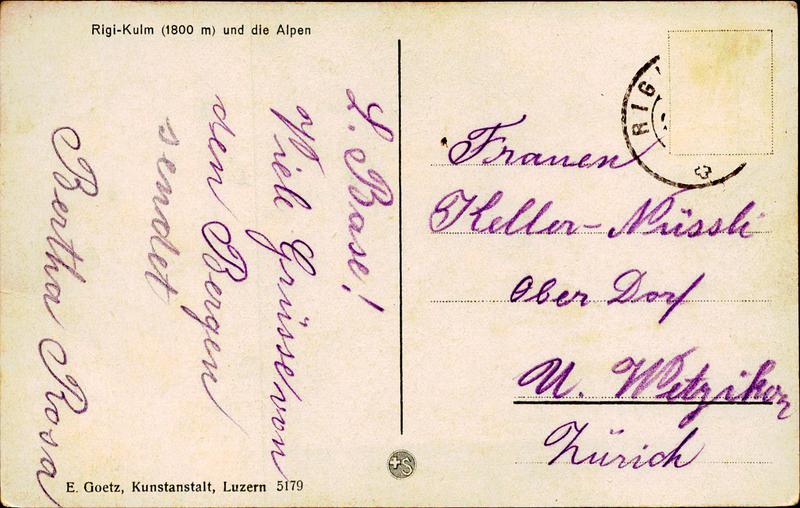 Rigi-Kulm (1800 m) und die Alpen
L. Base!
Viele Grüsse von
den Bergen
sendet
Bertha Rosa
E. Goetz, Kunstanstalt, Luzern 5179
S
RIGI
Frauen
Keller-Nüssli
Ober Dorf
U. Wetzikon
Zürich